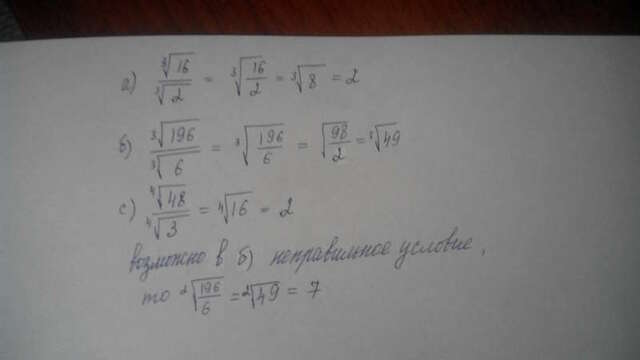 а) ∛16 / ∛2 = ∛(16/2) = ∛8 = 2
б) ∛196 / ∛6 = ∛(196/6) = √(98/2) = ∛49
с) ∜48 / ∜3 = ∜16 = 2
возможно в б) неправильное условие,
то ²√(196/6) = ²√49 = 7